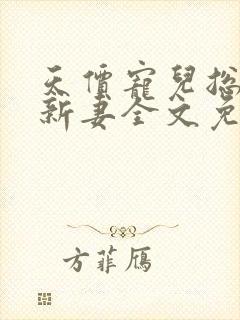 天價寵兒總
新妻全文免
方菲雁